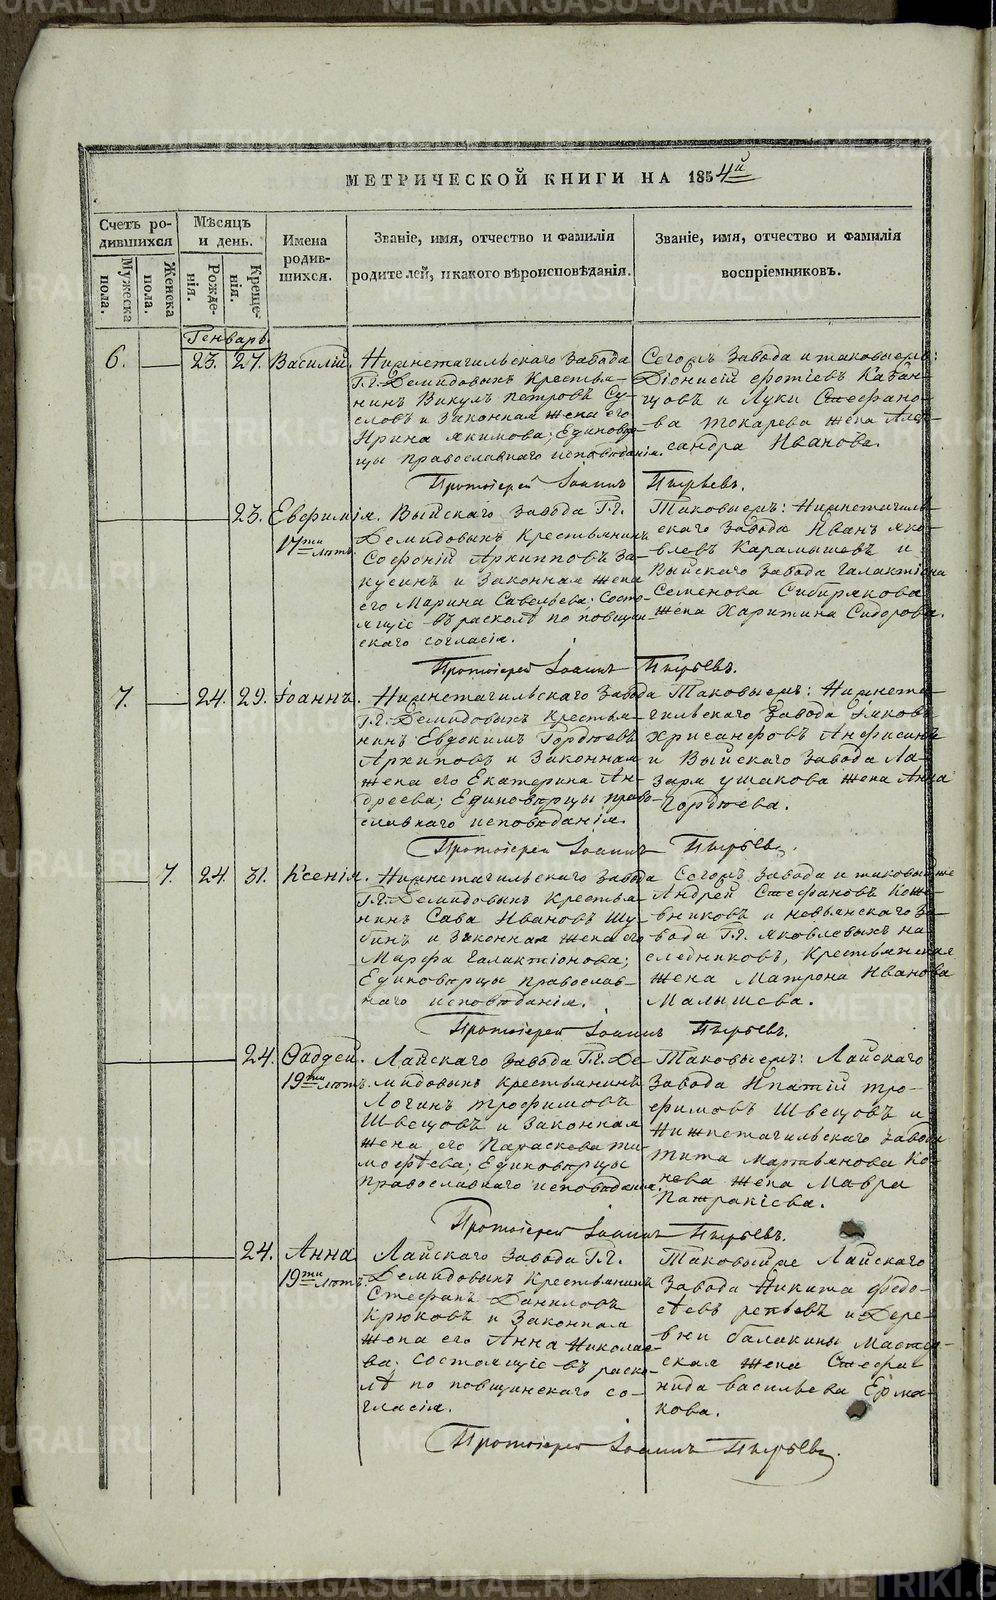 МЕТРИЧЕСКОЙ КНИГИ НА 1854й
Счетъ ро-
дившихся
Мужеска
пола.
Женска
пола.
Мѣсяцъ
и день.
Рожде-
нія.
Креще-
нія.
Имена
родив-
шихся.
Званіе, имя, отчество и фамилія
родителей, и какого вѣроисповѣданія.
Званіе, имя, отчество и фамилія
воспріемниковъ.
Генварь
6. 23. 27. Василій.
Нижнетагильскаго завода
Г.г. Демидовыхъ крестья-
нинъ Викулъ Петровъ Су-
словъ и законная жена его
Ирина Якимова; Единовѣр-
цы православнаго исповѣданія.
Сегожъ завода и таковыежъ:
Діонисій Фотіевъ Казан-
цовъ и Луки Стефано-
ва Токарева жена Алек-
сандра Иванова.
Протоіерей Іоаннъ Пырьевъ.
23. Евфимія.
17ти лѣтъ
Выйскаго завода Г.г.
Демидовыхъ крестьянинъ
Софроній Архипповъ За-
кусинъ и законная жена
его Марина Савельева: Состо-
ящіе въ расколѣ по повщин-
скаго согласія.
Таковыежъ: Нижнетагиль-
скаго завода Иванъ Яко-
влевъ Карамышевъ и
Выйскаго завода Галактіона
Семенова Сибирякова
жена Харитина Сидорова.
Протоіерей Іоаннъ Пырьевъ.
7. 24. 29. Іоаннъ.
Нижнетагильскаго завода
Г.г. Демидовыхъ крестья-
нинъ Евдокимъ Гордѣевъ
Архиповъ и законная
жена его Екатерина Ан-
дреева; Единовѣрцы право-
славнаго исповѣданія.
Таковыежъ: Нижнета-
гильскаго завода Іаковъ
Хрисанфовъ Анфисинъ
и Выйскаго завода Ла-
заря Ушакова жена Анна
Гордѣева.
Протоіерей Іоаннъ Пырьевъ.
7. 24. 31. Ксенія.
Нижнетагильскаго завода
Г.г. Демидовыхъ крестья-
нинъ Сава Ивановъ Шу-
бинъ и законная жена его
Марфа Галактіонова;
Единовѣрцы православ-
наго исповѣданія.
Сегожъ завода и таковыеже
Андрей Стефановъ Коже-
вниковъ и Невьянскаго за-
вода Г.г. Яковлевыхъ на-
следниковъ, крестьянская
жена Матрона Иванова
Малышева.
Протоіерей Іоаннъ Пырьевъ.
24. Ѳаддей.
19ти лѣтъ.
Лайскаго завода Г.г. Де-
мидовыхъ крестьянинъ
Логинъ Трофимовъ
Швецовъ и законная
жена его Параскева Ти-
мофѣева; Единовѣрцы
православнаго исповѣданія.
Таковыежъ: Лайскаго
завода Ипатій Тро-
фимовъ Швецовъ и
Нижнетагильскаго завода
Тита Мартьянова Ко-
нева жена Мавра
Патракіева.
Протоіерей Іоаннъ Пырьевъ.
24. Анна
19ти лѣтъ
Лайскаго завода Г.г.
Демидовыхъ крестьянинъ
Стефанъ Даниловъ
Крюковъ и законная
жена его Анна Николае-
ва: состоящіе въ раско-
лѣ по повщинскаго со-
гласія.
Таковыеже Лайскаго
завода Никита Ѳедо-
сѣевъ Репьевъ и Дере-
вни Балакины Мастер-
ская жена Стефа-
нида Васильева Ерма-
кова.
Протоіерей Іоаннъ Пырьевъ.